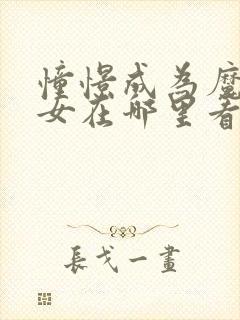 憧憬成为魔
女在哪里看
長戈一畫